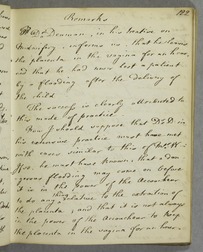 122
Remarks
Dr Denman, in his treatise on
Midwifery, informs us, that he leaves
the placenta in the vagina for an hour,
and that he had never lost a patient
by a flooding after the delivery of
the child.
The success is clearly attributed to
this mode of practice.
Now I should suppose that Dr D in
his extensive practice must have met
with cases similar to this of
for he must have known, that a dan-
gerous flooding may come on before
it is in the power of the Accoucheur
to do any relative to the extraction of
the placenta, and that it is not always
in the power of the Accoucheur to keep
the placenta in the vagina for an hour.